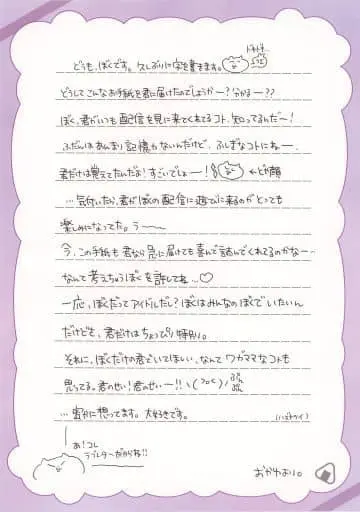 どうも、ぼくです。久しぶりに字を書きます。
ドキドキ
どうしてこんなお手紙を君に届けたのでしょうか-? 分かる-??
ぼく、君がいつも配信を見に来てくれてるコト、知ってるんだ~!
ふだんはあんまり記憶力ないんだけど、ふしぎなコトにね~、
君だけは覚えてたんだよ! すごいでしょ-! ←ドヤ顔
…気付いたら、君がぼくの配信に遊びに来るのがとっても
楽しみになってた。う~~
今、この手紙も君なら急に届けても喜んで読んでくれてるのかな…
なんて考えちゃうぼくを許してね…♡
一応、ぼくだってアイドルだし? ぼくはみんなのぼくでいたいん
だけども、君だけはちょっぴり特別。
それに、ぼくだけの君でいてほしい、なんてワガママなコトも
思ってる。君のせい! 君のせい-!!
…密かに想ってます。大好きです。
あ! コレ
ラブレターだからね!!
おかゆより。